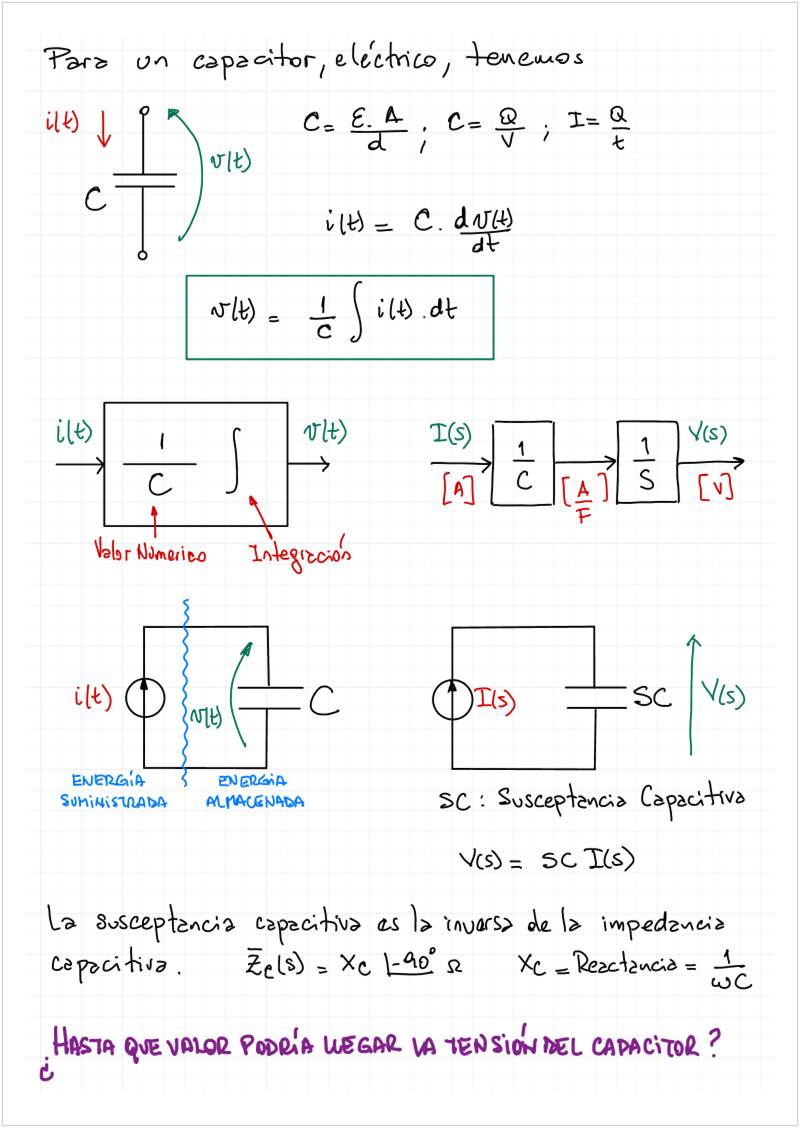 Para un capacitor, eléctrico, tenemos
i(t)
v(t)
C
C = ε.A/d ; C = Q/V ; I = Q/t
i(t) = C . dv(t)/dt
v(t) = 1/C ∫ i(t) . dt
i(t)
1/C ∫
v(t)
Valor Numerico
Integración
I(s)
[A]
1/C
[A/F]
1/S
V(s)
[V]
i(t)
v(t)
C
ENERGÍA SUMINISTRADA
ENERGIA ALMACENADA
I(s)
SC
V(s)
SC : Susceptancia Capacitiva
V(s) = SC I(s)
La susceptancia capacitiva es la inversa de la impedancia
capacitiva. Z̄c(s) = Xc ∟-90° Ω Xc = Reactancia = 1/ωC
¿HASTA QUE VALOR PODRÍA LLEGAR LA TENSIÓN DEL CAPACITOR?